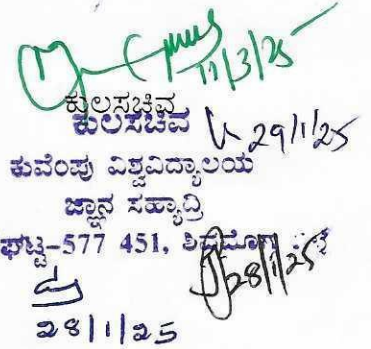 11/3/25
ಕುಲಸಚಿವ
ಕುಲಸಚಿವ
29/1/25
ಕುವೆಂಪು ವಿಶ್ವವಿದ್ಯಾಲಯ
ಜ್ಞಾನ ಸಹ್ಯಾದ್ರಿ
ಘಟ್ಟ-577 451,
28/1/25
28/1/25